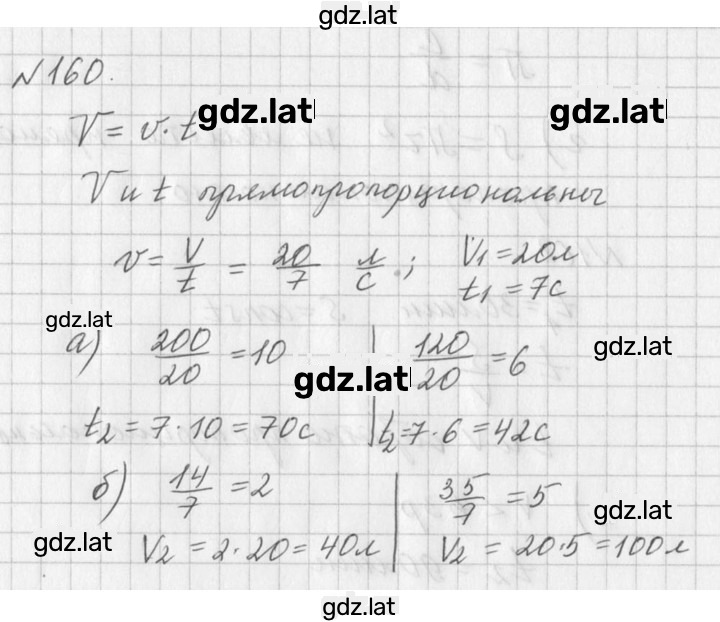 gdz.lat
№160.
V = v·t gdz.lat gdz.lat
V и t прямопропорциональны
v = V/t = 20/7 л/с.; V₁ = 20л
t₁ = 7с
gdz.lat
а) 200/20 = 10 | 120/20 = 6 gdz.lat
gdz.lat
t₂ = 7·10 = 70с | t₂ = 7·6 = 42с
б) 14/7 = 2 | 35/7 = 5 gdz.lat
gdz.lat
V₂ = 2·20 = 40л | V₂ = 20·5 = 100л
gdz.lat